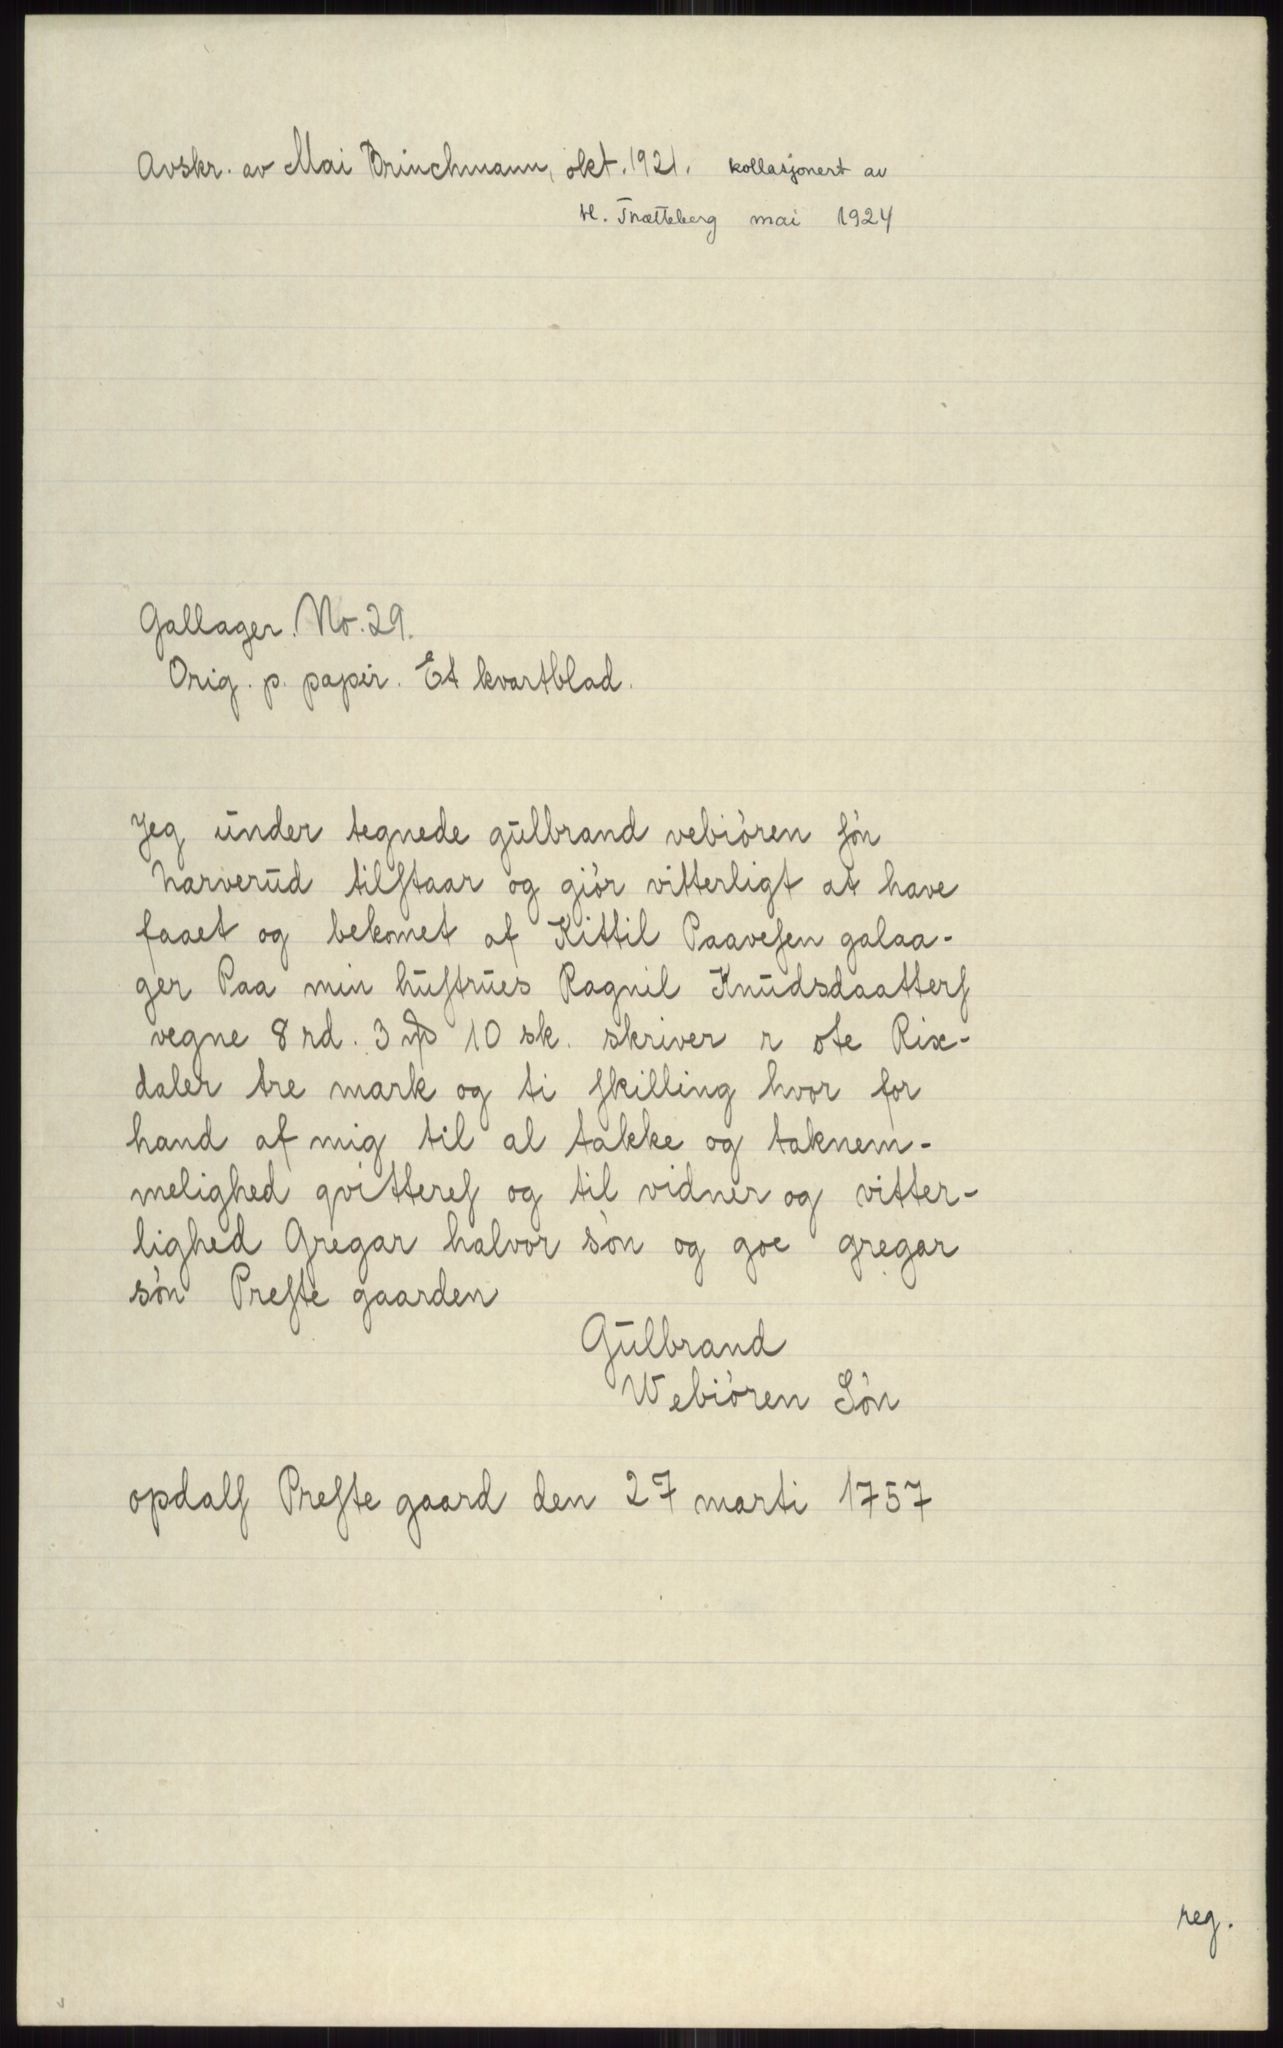 Avskr. av Mai Brinchmann, okt. 1921. kollasjonert av
H. Trætteberg mai 1924
Gallager. No. 29.
Orig. p. papir. Et kvartblad.
Jeg ūnder tegnede gūlbrand vebiören ſön
narverūd tilſtaar og giör vitterligt at have
faaet og bekomet af Kittil Paaveſen galaa-
ger Paa min hūſtrūes Ragnil Knūdsdaatterſ
vegne 8 rd. 3 ₥ 10 sk. skriver r ote Rix-
daler tre mark og ti ſkilling hvor for
hand af mig til al takke og taknem-
melighed qvittereſ og til vidner og vitter-
lighed Gregar halvor sön og goe gregar
sön Preſte gaarden
Gūlbrand
Webiören Sön
opdalſ Preſte gaard den 27 marti 1757
reg.